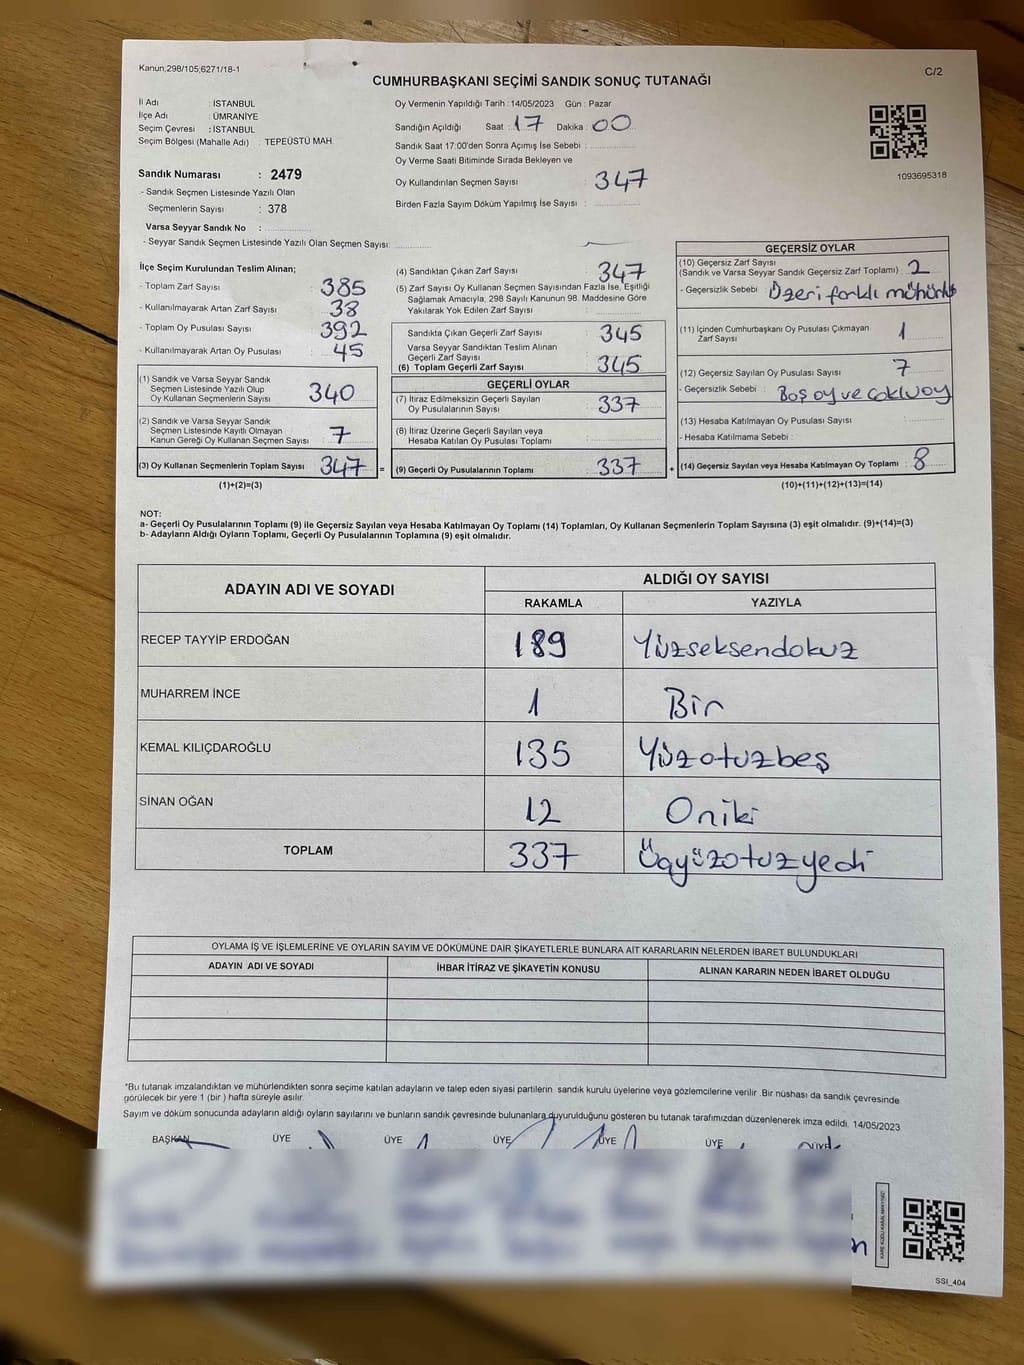 Kanun;298/105;6271/18-1
CUMHURBAŞKANI SEÇİMİ SANDIK SONUÇ TUTANAĞI
C/2
İl Adı : İSTANBUL
İlçe Adı : ÜMRANİYE
Seçim Çevresi : İSTANBUL
Seçim Bölgesi (Mahalle Adı) : TEPEÜSTÜ MAH.
Sandık Numarası : 2479
- Sandık Seçmen Listesinde Yazılı Olan
Seçmenlerin Sayısı : 378
Varsa Seyyar Sandık No :
- Seyyar Sandık Seçmen Listesinde Yazılı Olan Seçmen Sayısı:
Oy Vermenin Yapıldığı Tarih : 14/05/2023 Gün : Pazar
Sandığın Açıldığı Saat : 17 Dakika : 00
Sandık Saat 17:00'den Sonra Açımış İse Sebebi :
Oy Verme Saati Bitiminde Sırada Bekleyen ve
Oy Kullandırılan Seçmen Sayısı : 347
Birden Fazla Sayım Döküm Yapılmış İse Sayısı :
1093695318
İlçe Seçim Kurulundan Teslim Alınan;
- Toplam Zarf Sayısı : 385
- Kullanılmayarak Artan Zarf Sayısı : 38
- Toplam Oy Pusulası Sayısı : 392
- Kullanılmayarak Artan Oy Pusulası : 45
(1) Sandık ve Varsa Seyyar Sandık
Seçmen Listesinde Yazılı Olup
Oy Kullanan Seçmenlerin Sayısı : 340
(2) Sandık ve Varsa Seyyar Sandık
Seçmen Listesinde Kayıtlı Olmayan
Kanun Gereği Oy Kullanan Seçmen Sayısı : 7
(3) Oy Kullanan Seçmenlerin Toplam Sayısı : 347 =
(1)+(2)=(3)
(4) Sandıktan Çıkan Zarf Sayısı : 347
(5) Zarf Sayısı Oy Kullanan Seçmen Sayısından Fazla İse, Eşitliği
Sağlamak Amacıyla; 298 Sayılı Kanunun 98. Maddesine Göre
Yakılarak Yok Edilen Zarf Sayısı :
Sandıkta Çıkan Geçerli Zarf Sayısı : 345
Varsa Seyyar Sandıktan Teslim Alınan
Geçerli Zarf Sayısı :
(6) Toplam Geçerli Zarf Sayısı : 345
GEÇERLİ OYLAR
(7) İtiraz Edilmeksizin Geçerli Sayılan
Oy Pusulalarının Sayısı : 337
(8) İtiraz Üzerine Geçerli Sayılan veya
Hesaba Katılan Oy Pusulası Toplamı :
(9) Geçerli Oy Pusulalarının Toplamı : 337 +
GEÇERSİZ OYLAR
(10) Geçersiz Zarf Sayısı
(Sandık ve Varsa Seyyar Sandık Geçersiz Zarf Toplamı) : 2
- Geçersizlik Sebebi : Üzeri farklı mühürlü
(11) İçinden Cumhurbaşkanı Oy Pusulası Çıkmayan
Zarf Sayısı : 1
(12) Geçersiz Sayılan Oy Pusulası Sayısı : 7
- Geçersizlik Sebebi : Boş oy ve çoklu oy
(13) Hesaba Katılmayan Oy Pusulası Sayısı :
- Hesaba Katılmama Sebebi :
(14) Geçersiz Sayılan veya Hesaba Katılmayan Oy Toplamı : 8
(10)+(11)+(12)+(13)=(14)
NOT:
a- Geçerli Oy Pusulalarının Toplamı (9) ile Geçersiz Sayılan veya Hesaba Katılmayan Oy Toplamı (14) Toplamları, Oy Kullanan Seçmenlerin Toplam Sayısına (3) eşit olmalıdır. (9)+(14)=(3)
b- Adayların Aldığı Oyların Toplamı, Geçerli Oy Pusulalarının Toplamına (9) eşit olmalıdır.
ADAYIN ADI VE SOYADI
ALDIĞI OY SAYISI
RAKAMLA YAZIYLA
RECEP TAYYİP ERDOĞAN 189 Yüzseksendokuz
MUHARREM İNCE 1 Bir
KEMAL KILIÇDAROĞLU 135 Yüzotuzbeş
SİNAN OĞAN 12 Oniki
TOPLAM 337 Üçyüzotuzyedi
OYLAMA İŞ VE İŞLEMLERİNE VE OYLARIN SAYIM VE DÖKÜMÜNE DAİR ŞİKAYETLERLE BUNLARA AİT KARARLARIN NELERDEN İBARET BULUNDUKLARI
ADAYIN ADI VE SOYADI İHBAR İTİRAZ VE ŞİKAYETİN KONUSU ALINAN KARARIN NEDEN İBARET OLDUĞU
*Bu tutanak imzalandıktan ve mühürlendikten sonra seçime katılan adayların ve talep eden siyasi partilerin sandık kurulu üyelerine veya gözlemcilerine verilir .Bir nüshası da sandık çevresinde
görülecek bir yere 1 (bir ) hafta süreyle asılır.
Sayım ve döküm sonucunda adayların aldığı oyların sayılarını ve bunların sandık çevresinde bulunanlara duyurulduğunu gösteren bu tutanak tarafımızdan düzenlenerek imza edildi. 14/05/2023
BAŞKAN ÜYE ÜYE ÜYE ÜYE ÜYE ÜYE
SSI_404